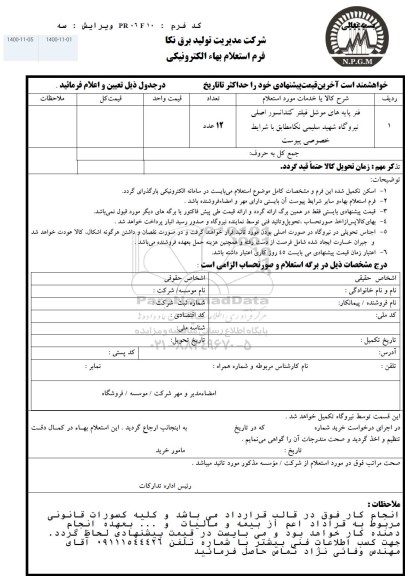 کد فرم : PR-06F10 ویرایش : سه
1400-11-05
1400-11-01
شرکت مدیریت تولید برق نکا
فرم استعلام بهاء الکترونیکی
N.P.G.M
خواهشمند است آخرین‌قیمت‌پیشنهادی خود را حداکثر تاتاریخ درجدول ذیل تعیین و اعلام فرمائید .
ردیف شرح کالا یا خدمات مورد استعلام تعداد قیمت واحد قیمت‌کل ملاحظات
۱ فنر پایه های موشل فیلتر کندانسور اصلی نیروگاه شهید سلیمی نکامطابق با شرایط خصوصی پیوست ۱۲ عدد
جمع کل به حروف:
تذکر مهم : زمان تحویل کالا حتماً قید گردد.
توضیحات:
۱- اسکن تکمیل شده این فرم و مشخصات کامل موضوع استعلام می‌بایست در سامانه الکترونیکی بارگذاری گردد.
۲- فرم استعلام بهاءو سایر شرایط پیوست آن بایستی دارای مهر و امضاءفروشنده باشد .
۳- قیمت پیشنهادی بایستی فقط در همین برگ ارائه گردد و ارائه قیمت طی پیش فاکتور یا برگه های دیگر مورد قبول نمی‌باشد.
۴- بهای‌کالاپس‌ازاخذ صورتحساب ،تحویل‌وتائید فنی توسط نماینده نیروگاه و صدور رسید انبار پرداخت خواهد شد .
۵- اجناس تحویلی در نیروگاه در صورت اصلی بودن مورد تائید قرار خواهد گرفت و در صورت نقصان و داشتن هرگونه اشکال، کالا عودت خواهد شد
و جبران خسارت ایجاد شده شامل فرصت از دست رفته و همچنین هزینه حمل بعهده فروشنده می‌باشد.
۶- اعتبار زمان قیمت پیشنهادی می بایست ۴۵ روز کاری اعتبار داشته باشد.
درج مشخصات ذیل در برگه استعلام و صورتحساب الزامی است :
اشخاص حقیقی اشخاص حقوقی
نام و نام خانوادگی : نام موسسه/ شرکت :
نام فروشنده / پیمانکار: شماره ثبت شرکت:
کد ملی: کد اقتصادی :
شناسه ملی:
تاریخ تکمیل : تاریخ تحویل:
آدرس: کد پستی :
تلفن : نام کارشناس مربوطه و شماره همراه : نمابر :
امضاءمدیر و مهر شرکت / موسسه / فروشگاه
ParsNamadData
۰۲۱-۸۸۳۴۹۶۷۰-۵
این قسمت توسط نیروگاه تکمیل خواهد شد .
در اجرای درخواست خرید شماره که در تاریخ به اینجانب ارجاع گردید . این استعلام بهاء در کمال دقت
تنظیم و اخذ گردید و صحت مندرجات آن را گواهی می‌نمایم .
تاریخ : مامور خرید
صحت مراتب فوق در مورد استعلام از شرکت / مؤسسه مذکور مورد تائید میباشد .
رئیس اداره تدارکات
ملاحظات :
انجام کار فوق در قالب قرارداد می باشد و کلیه کسورات قانونی
مربوط به قرارداد اعم از بیمه و مالیات و ... بعهده انجام
دهنده کار خواهد بود و می بایست در قیمت پیشنهادی لحاظ گردد.
جهت کسب اطلاعات فنی بیشتر با شماره تلفن ۰۹۱۱۱۵۴۴۴۲۶ آقای
مهندس وفائی نژاد تماس حاصل فرمائید